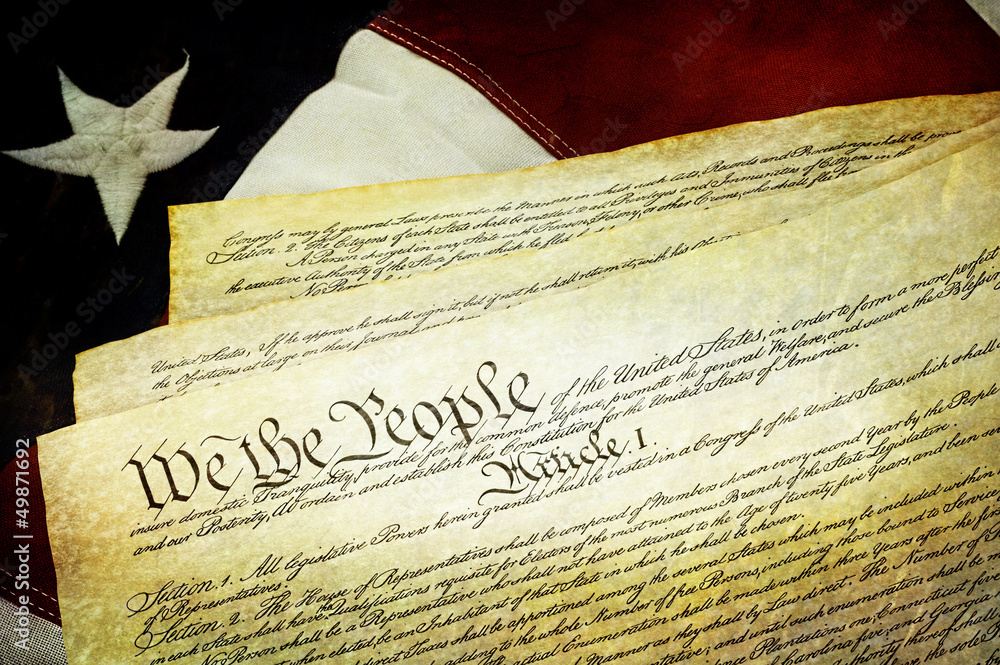 Congress may by general Laws prescribe the Manner in which such Acts, Records and Proceedings shall be prove
Section. 2. The Citizens of each State shall be entitled to all Privileges and Immunities of Citizens in the
A Person charged in any State with Treason, Felony, or other Crime, who shall flee
the executive Authority of the State from which he fled
No Person
United States, If he approve he shall sign it, but if not he shall return it, with his
the Objections at large on their Journal
We the People of the United States, in order to form a more perfect
insure domestic Tranquility, provide for the common defence, promote the general Welfare, and secure the Blessin
and our Posterity, do ordain and establish this Constitution for the United States of America.
Article. I.
Section. 1. All legislative Powers herein granted shall be vested in a Congress of the United States, which shall
of Representatives.
Section. 2. The House of Representatives shall be composed of Members chosen every second Year by the People
in each State shall have the Qualifications requisite for Electors of the most numerous Branch of the State Legislature.
No Person shall be a Representative who shall not have attained to the Age of twenty five Years, and been
when elected, be an Inhabitant of that State in which he shall be chosen.
direct Taxes shall be apportioned among the several States which may be included within
adding to the whole Number of free Persons, including those bound to Service
actual Enumeration shall be made within three Years after the
Manner as they shall by Law direct. The Number of
and until such enumeration shall be
Plantations one, Connecticut five
Carolina five, and Georgia
thereof shall
the sole
Adobe Stock | #49871692